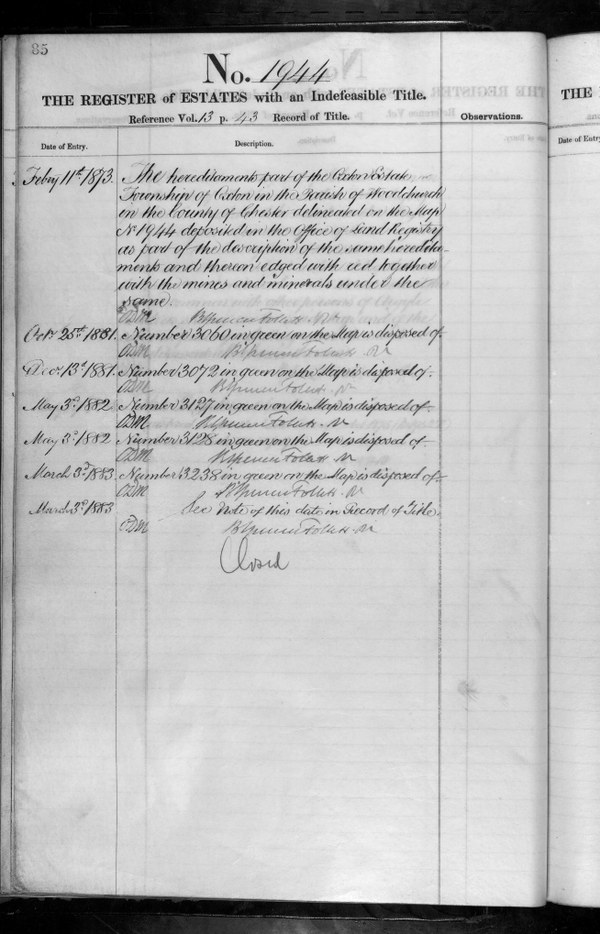 85
No. 1944
THE REGISTER of ESTATES with an Indefeasible Title.
Reference Vol. 13 p. 43 Record of Title.
Observations.
Date of Entry.
Description.
Febry 11th 1873. The hereditaments part of the Oxton Estate
Township of Oxton in the Parish of Woodchurch
in the County of Chester delineated on the Map
No 1944 deposited in the Office of Land Registry
as part of the description of the same heredita-
ments and thereon edged with red together
with the mines and minerals under the
same.
ODM
Octr 25th 1881. Number 3060 in green on the Map is disposed of.
ODM
Decr 13th 1881. Number 3072 in green on the Map is disposed of.
ODM
May 3d 1882. Number 3127 in green on the Map is disposed of.
ODM
May 3d 1882 Number 3128 in green on the Map is disposed of.
ODM
March 3d 1883. Number 3238 in green on the Map is disposed of.
ODM
March 3d 1883 See Note of this date in Record of Title.
ODM
Closed
THE
Date of Entry